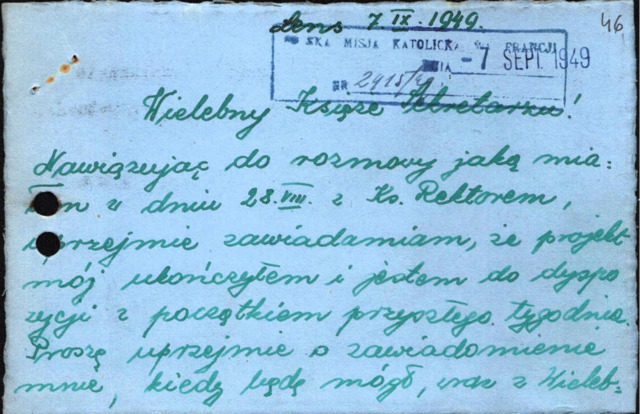 Lens 7.IX.1949.
46
SKA MISJA KATOLICKA WE FRANCJI
DNIA - 7 SEPT 1949
NR 2415/49
Wielebny Księże Sekretarzu!
Nawiązując do rozmowy jaką mia=
łem w dniu 28.VIII. z Ks. Rektorem,
uprzejmie zawiadamiam, że projekt
mój ukończyłem i jestem do dyspo
zycji z początkiem przyszłego tygodnia.
Proszę uprzejmie o zawiadomienie
mnie, kiedy będę mógł, wraz z Wieleb=